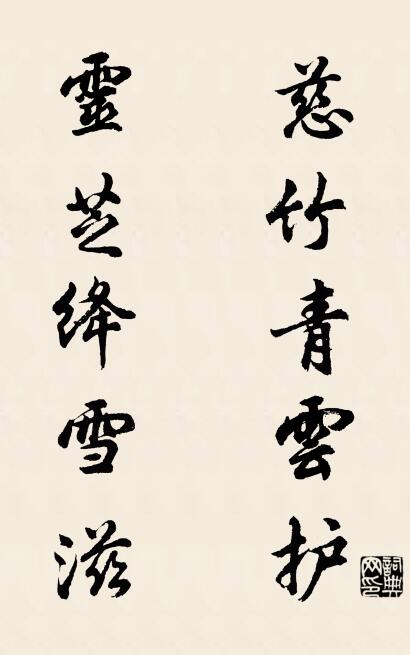 慈竹青雲护
靈芝绛雪滋
詞典网印